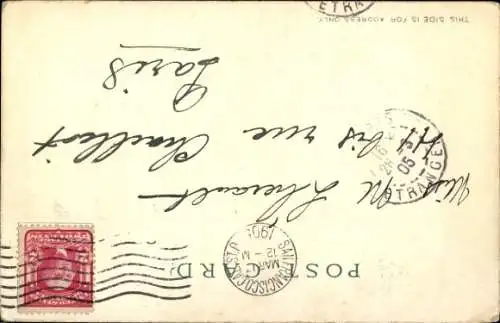 POST CARD
SAN FRANCISCO, CAL. STA.
MAR
12 - M
1905
Miss M. Therault
bis rue Chaillot
Paris
ETRANGER
05
THIS SIDE IS FOR ADDRESS ONLY
ETRAN